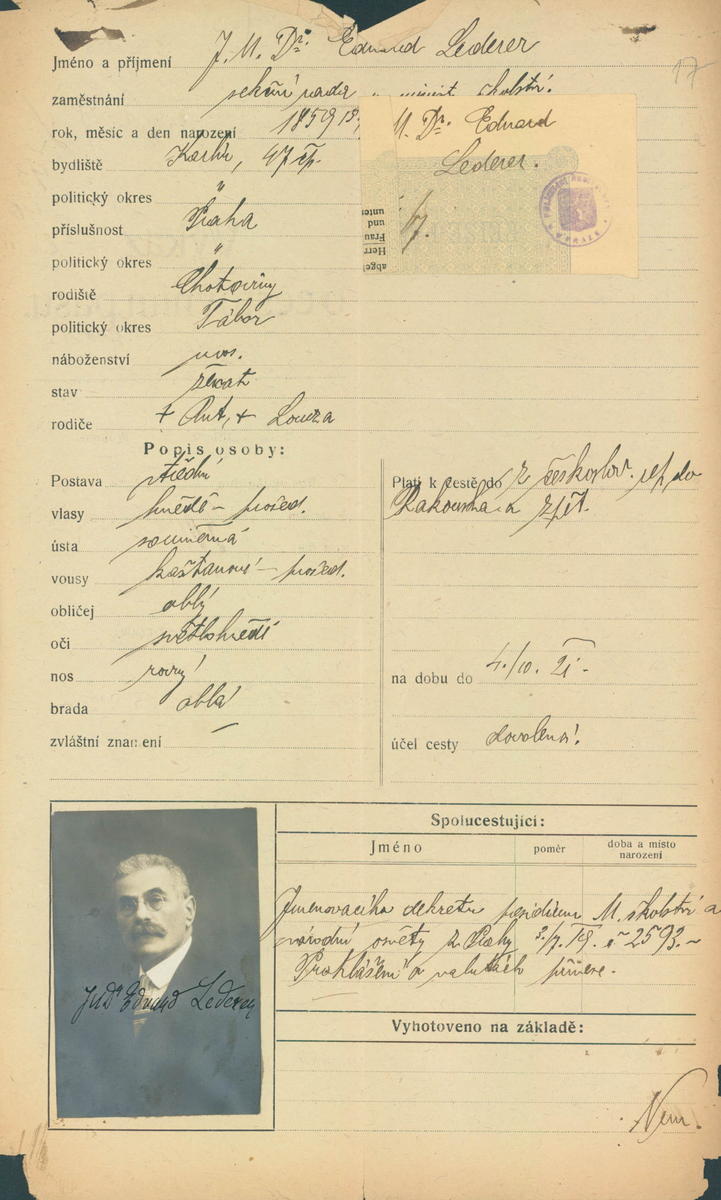 17
Jméno a příjmení J. U. Dr. Eduard Lederer
zaměstnání sekční rada v minist. školství.
rok, měsíc a den narození 1859
U. Dr. Eduard
Lederer.
bydliště Karlín, 47 čp.
politický okres "
příslušnost Praha
politický okres "
rodiště Chotoviny
politický okres Tábor
náboženství
stav ženat
rodiče + Ant, + Louisa
abge
Herr
Frau
und
unter
Popis osoby:
Postava střední
vlasy hnědé – prošed.
ústa souměrná
vousy kaštanové – prošed.
obličej oblý
oči světlohnědé
nos rovný
brada oblá
zvláštní znamení –
Platí k cestě do z českoslov. rep. do
Rakouska a zpět.
na dobu do 4./10. 21.
účel cesty dovolená.
JUDr Eduard Lederer
Spolucestující:
Jméno poměr doba a místo narození
Jmenovacího dekretu presidium M. školství a
národní osvěty z Prahy 3./7. 19. č 2593. –
Prohlášení o valutách
Vyhotoveno na základě: